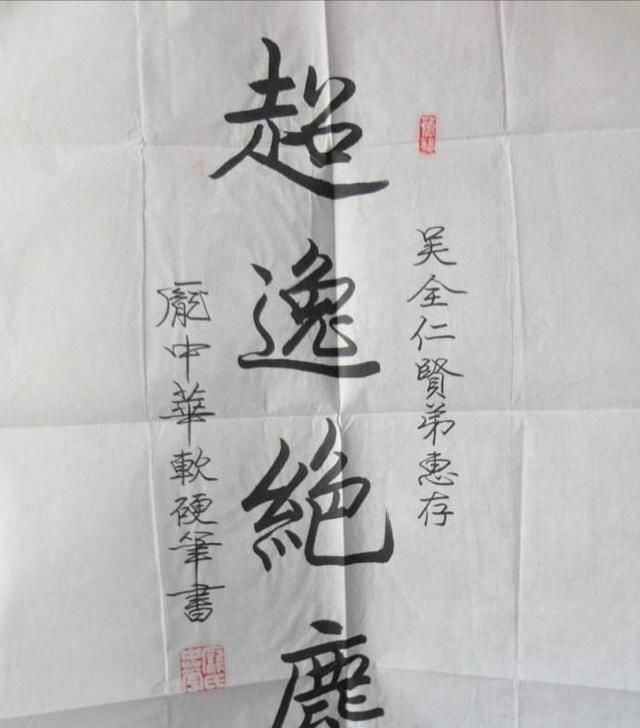 吴全仁賢弟惠存
超逸絕
龐中華軟硬筆書